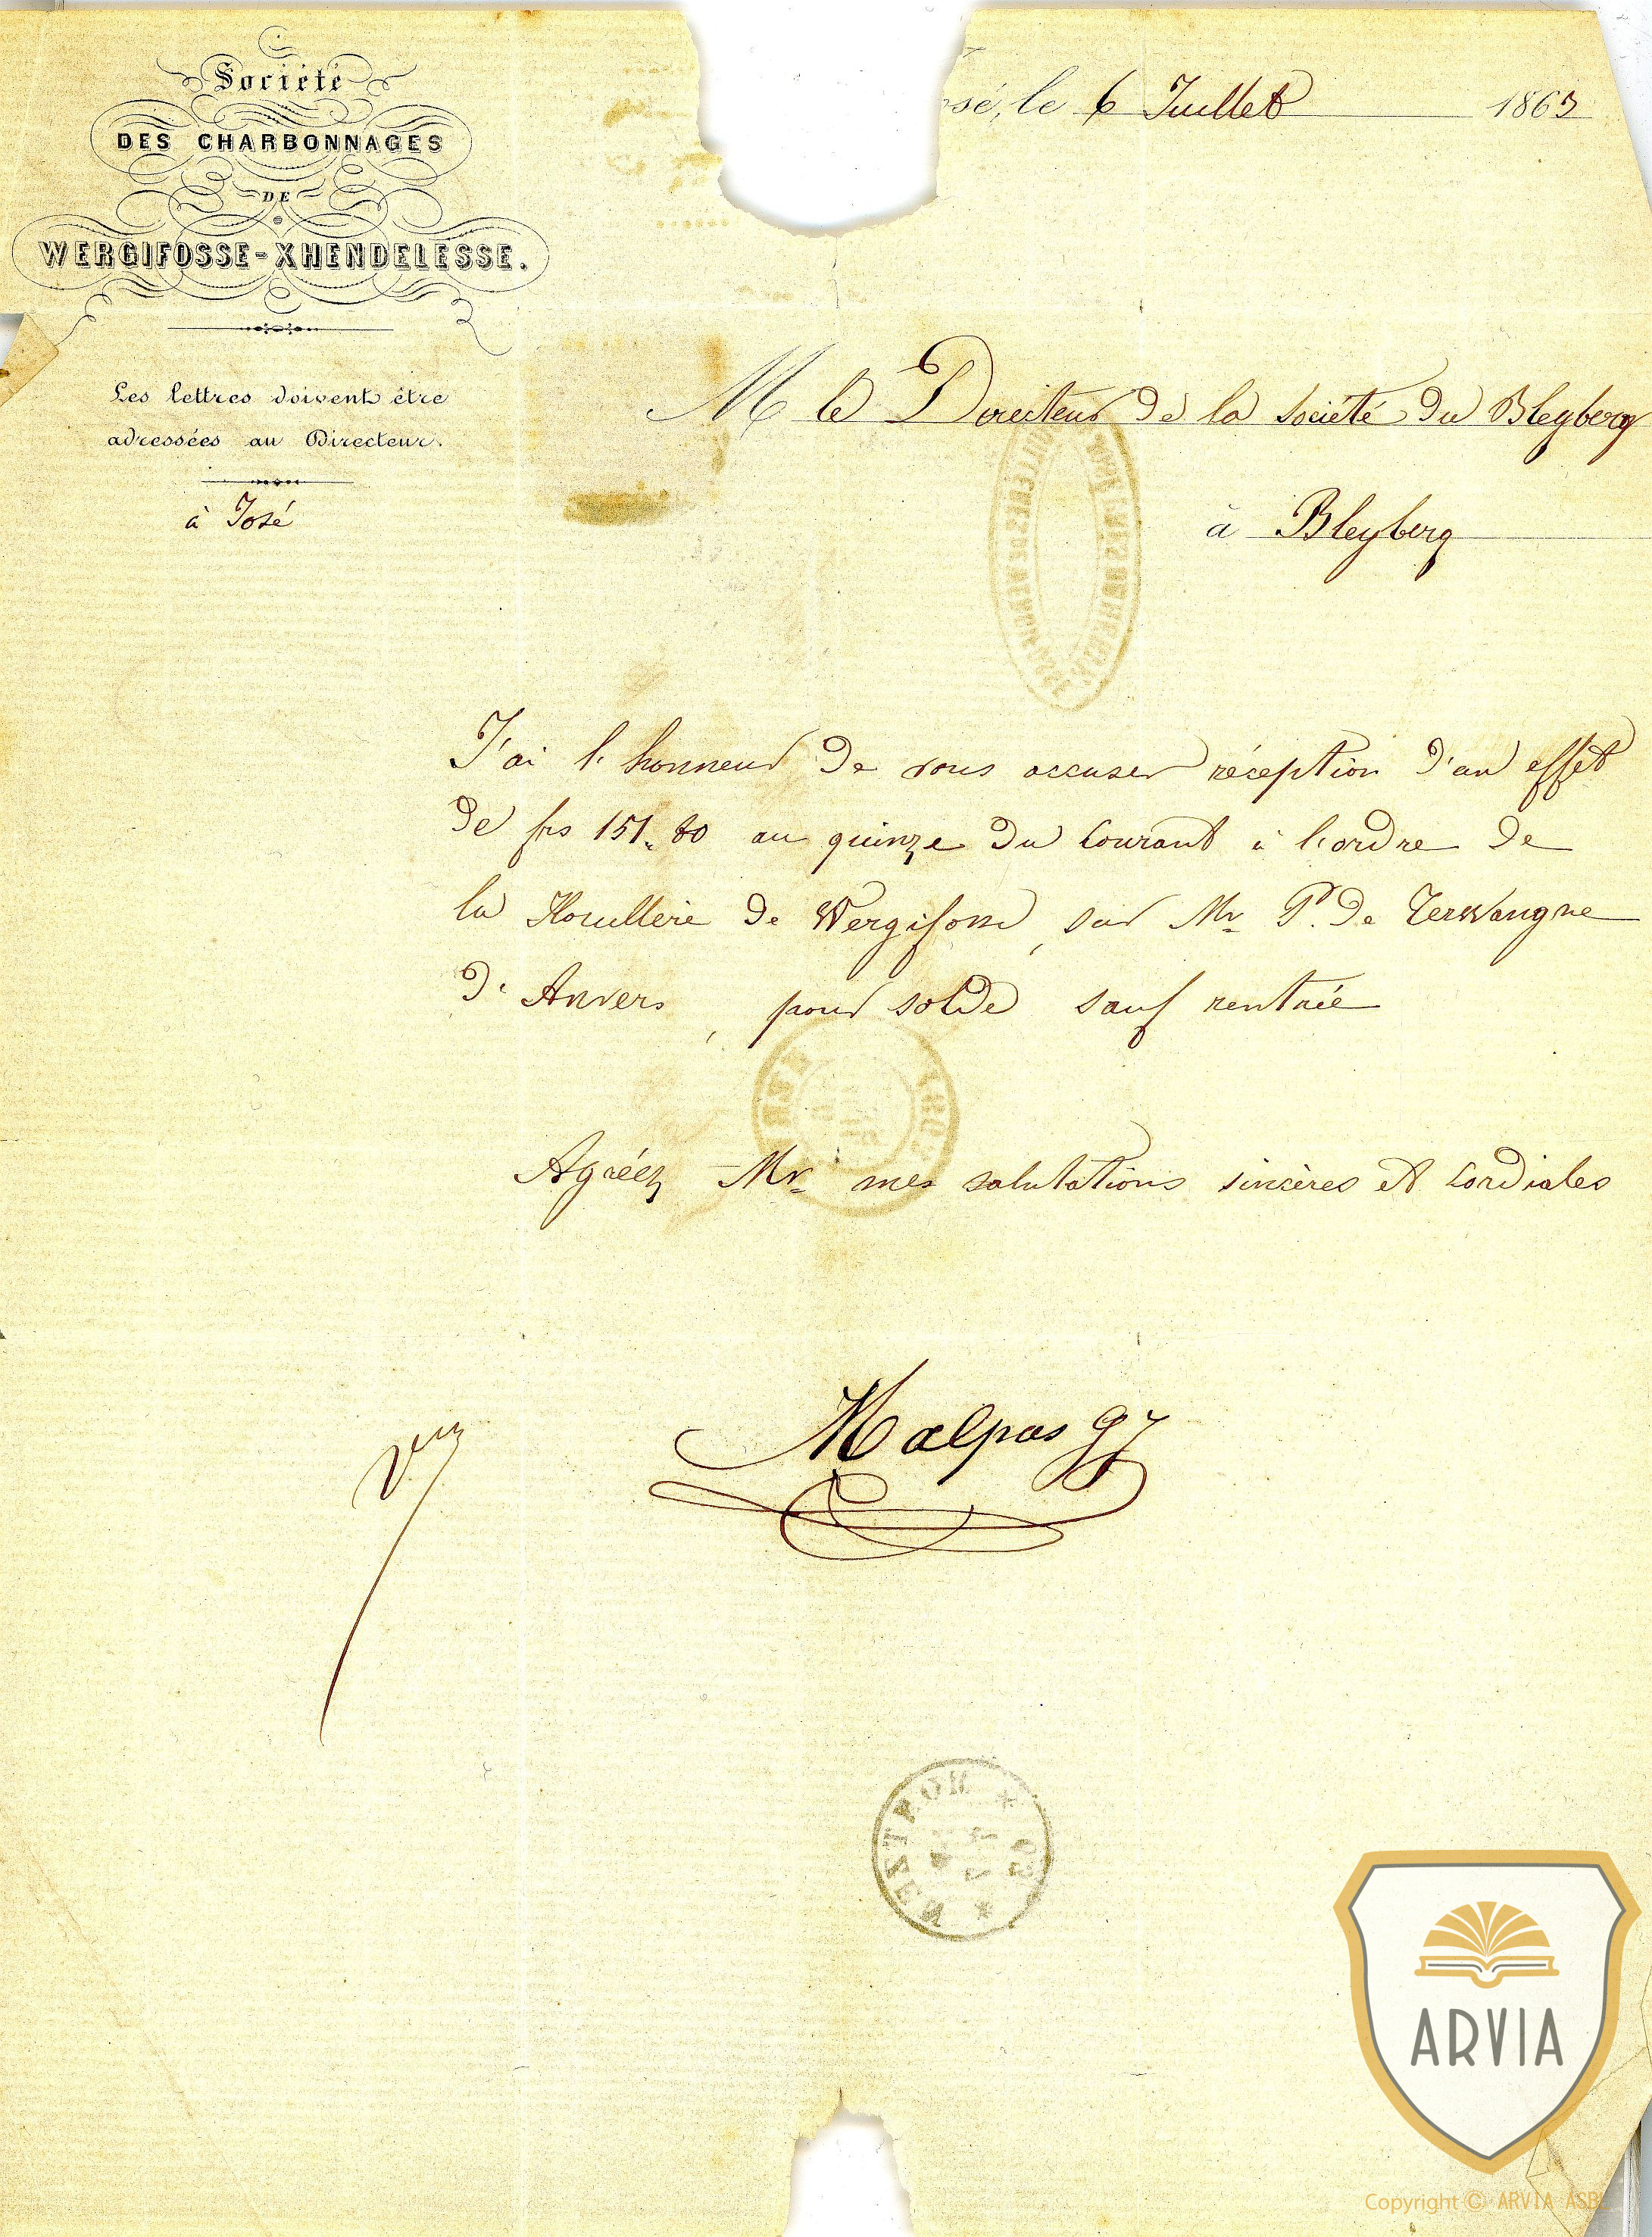 Société
DES CHARBONNAGES
DE
WERGIFOSSE-XHENDELESSE.
Les lettres doivent être
adressées au Directeur.
à José
sé, le 6 Juillet 1863
M le Directeur de la Société du Bleyberg
à Bleyberg
J'ai l'honneur de vous accuser réception d'un effet
de frs 151.80 au quinze du courant à l'ordre de
la Houillère de Wergifosse, sur Mr P. De Terwangne
d'Anvers, pour solde sauf rentrée
Agréez Mr mes salutations sincères et cordiales
Malpas
HERVE
MENTROR
ARVIA
Copyright © ARVIA ASBL